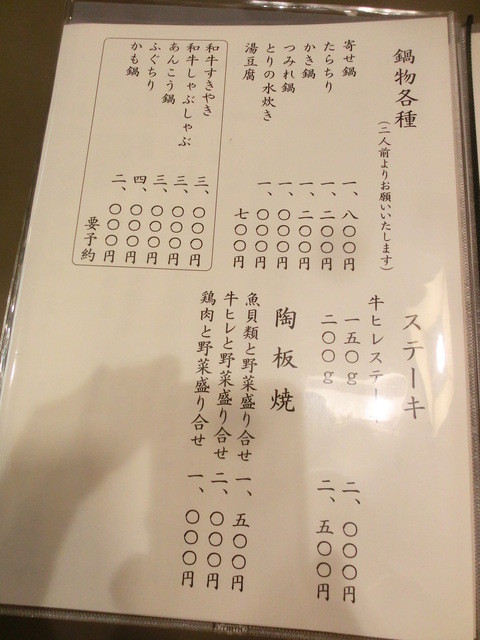 鍋物各種
(二人前よりお願いいたします)
寄せ鍋 一、八〇〇円
たらちり 一、二〇〇円
かき鍋 一、二〇〇円
つみれ鍋 一、〇〇〇円
とりの水炊き 一、〇〇〇円
湯豆腐 七〇〇円
和牛すきやき 三、〇〇〇円
和牛しゃぶしゃぶ 三、〇〇〇円
あんこう鍋 三、〇〇〇円
ふぐちり 四、〇〇〇円
かも鍋 二、〇〇〇円
要予約
ステーキ
牛ヒレステーキ
一五〇g 二、〇〇〇円
二〇〇g 二、五〇〇円
陶板焼
魚貝類と野菜盛り合せ 一、五〇〇円
牛ヒレと野菜盛り合せ 二、〇〇〇円
鶏肉と野菜盛り合せ 一、〇〇〇円